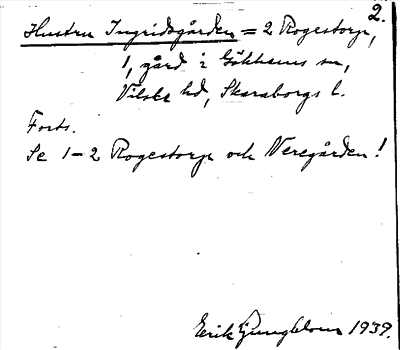 2.
Hustru Ingridsgården = 2 Rogestorp,
1, gård i Gökhems sn,
Vilske hd, Skaraborgs l.
Forts.
Se 1-2 Rogestorp och Neregården!
Erik Ljungblom 1939.